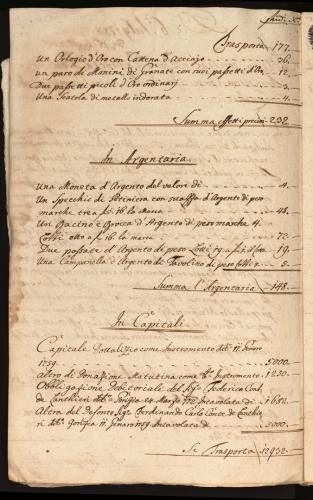 Trasporta 177.
Un Orlogio d'Oro con Cattena d'Acciajo 36.
Un paro de Manini di Granate con suoi passetti d'Oro 12.
Due passetti picoli d'Oro ordinarj 3.
Una Scatola di metall indorata 4.
Summa effetti preciosi 232
In Argentaria
Una Moneta d'Argento del valore di 4.
Un Specchio de Petiniera con staffa d'Argento di peso
marche tre a f. 16 la Marca 48.
Un Bacino e Brocca d'Argento di peso marche 4.
Lotti otto a f. 16 la marca 72.
Due possate d'Argento di peso Lotti 19 a f. 1 il Lotto 19.
Una Campanella d'Argento di Tavolino di peso Lotti 5. 5.
Summa l'Argentaria 148.
In Capitali
Capitale Dottalizio come Instromento dd.o 11 Genaro
1759 5000.
Altro di Donazione Matutina come d.o Instrumento 1250.
Obbligazione Debitoriale del Sig.r Federico Conte
de Lanthieri dd.o Gorizia 24 Marzo 172 Intavolata di 1682.
Altra del defonto Sig.r Ferdinando Carlo Conte de
dd.o Gorizia 11 Genaro 1759 Intavolata di
5000.
Si Trasporta 12932.